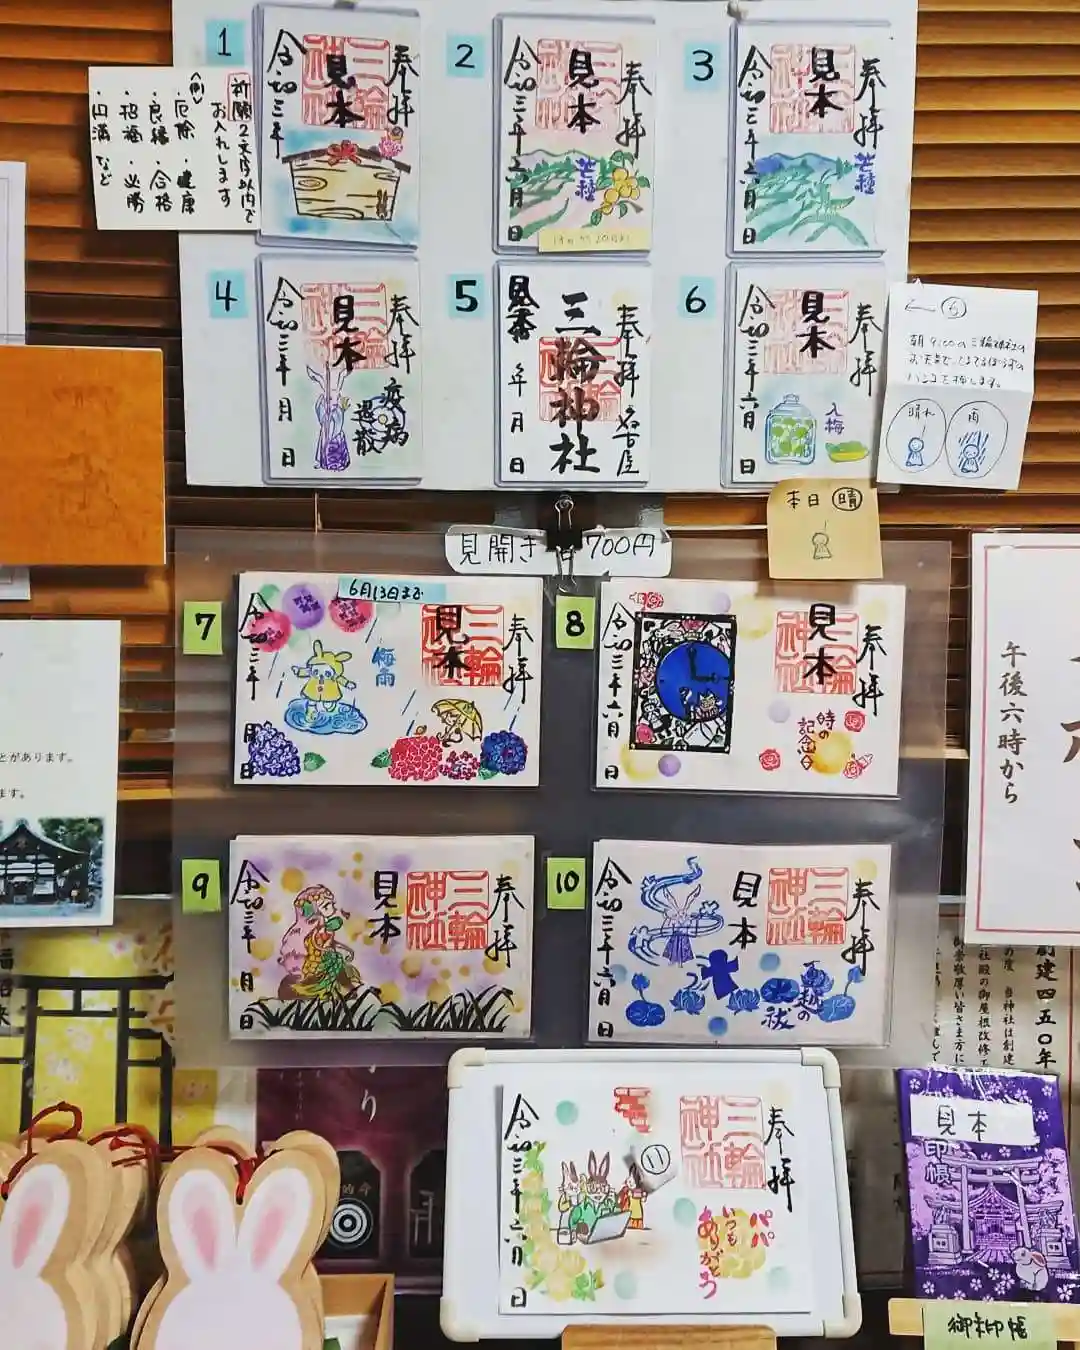 1
奉拝
三輪神社
見本
令和三年
祈願2文字以内で
お入れします
(例)
・厄除・健康
・良縁・合格
・招福・必勝
・円満など
2
奉拝
三輪神社
見本
芒種
令和三年六月
日
3
奉拝
三輪神社
見本
芒種
令和三年六月
日
4
奉拝
三輪神社
見本
疫病
退散
令和三年
月
日
5
奉拝
名古屋
三輪神社
見本
年
月
日
6
奉拝
三輪神社
見本
入梅
令和三年六月
日
←⑥
朝9:00の三輪神社の
お天気で、てるてるぼうずの
ハンコを押します。
晴れ
雨
本日 晴
見開き
700円
7
6月13日まで
奉拝
三輪神社
見本
梅雨
令和三年
月
日
8
奉拝
三輪神社
見本
時の
記念日
令和三年六月
日
9
奉拝
三輪神社
見本
令和三年
月
日
10
奉拝
三輪神社
見本
夏越の
祓
令和三年六月
日
11
奉拝
三輪神社
パパ
いつも
ありがとう
令和三年六月
日
午後六時から
とがあります。
ます。
創建四五〇年
見本
印帳
御朱印帳